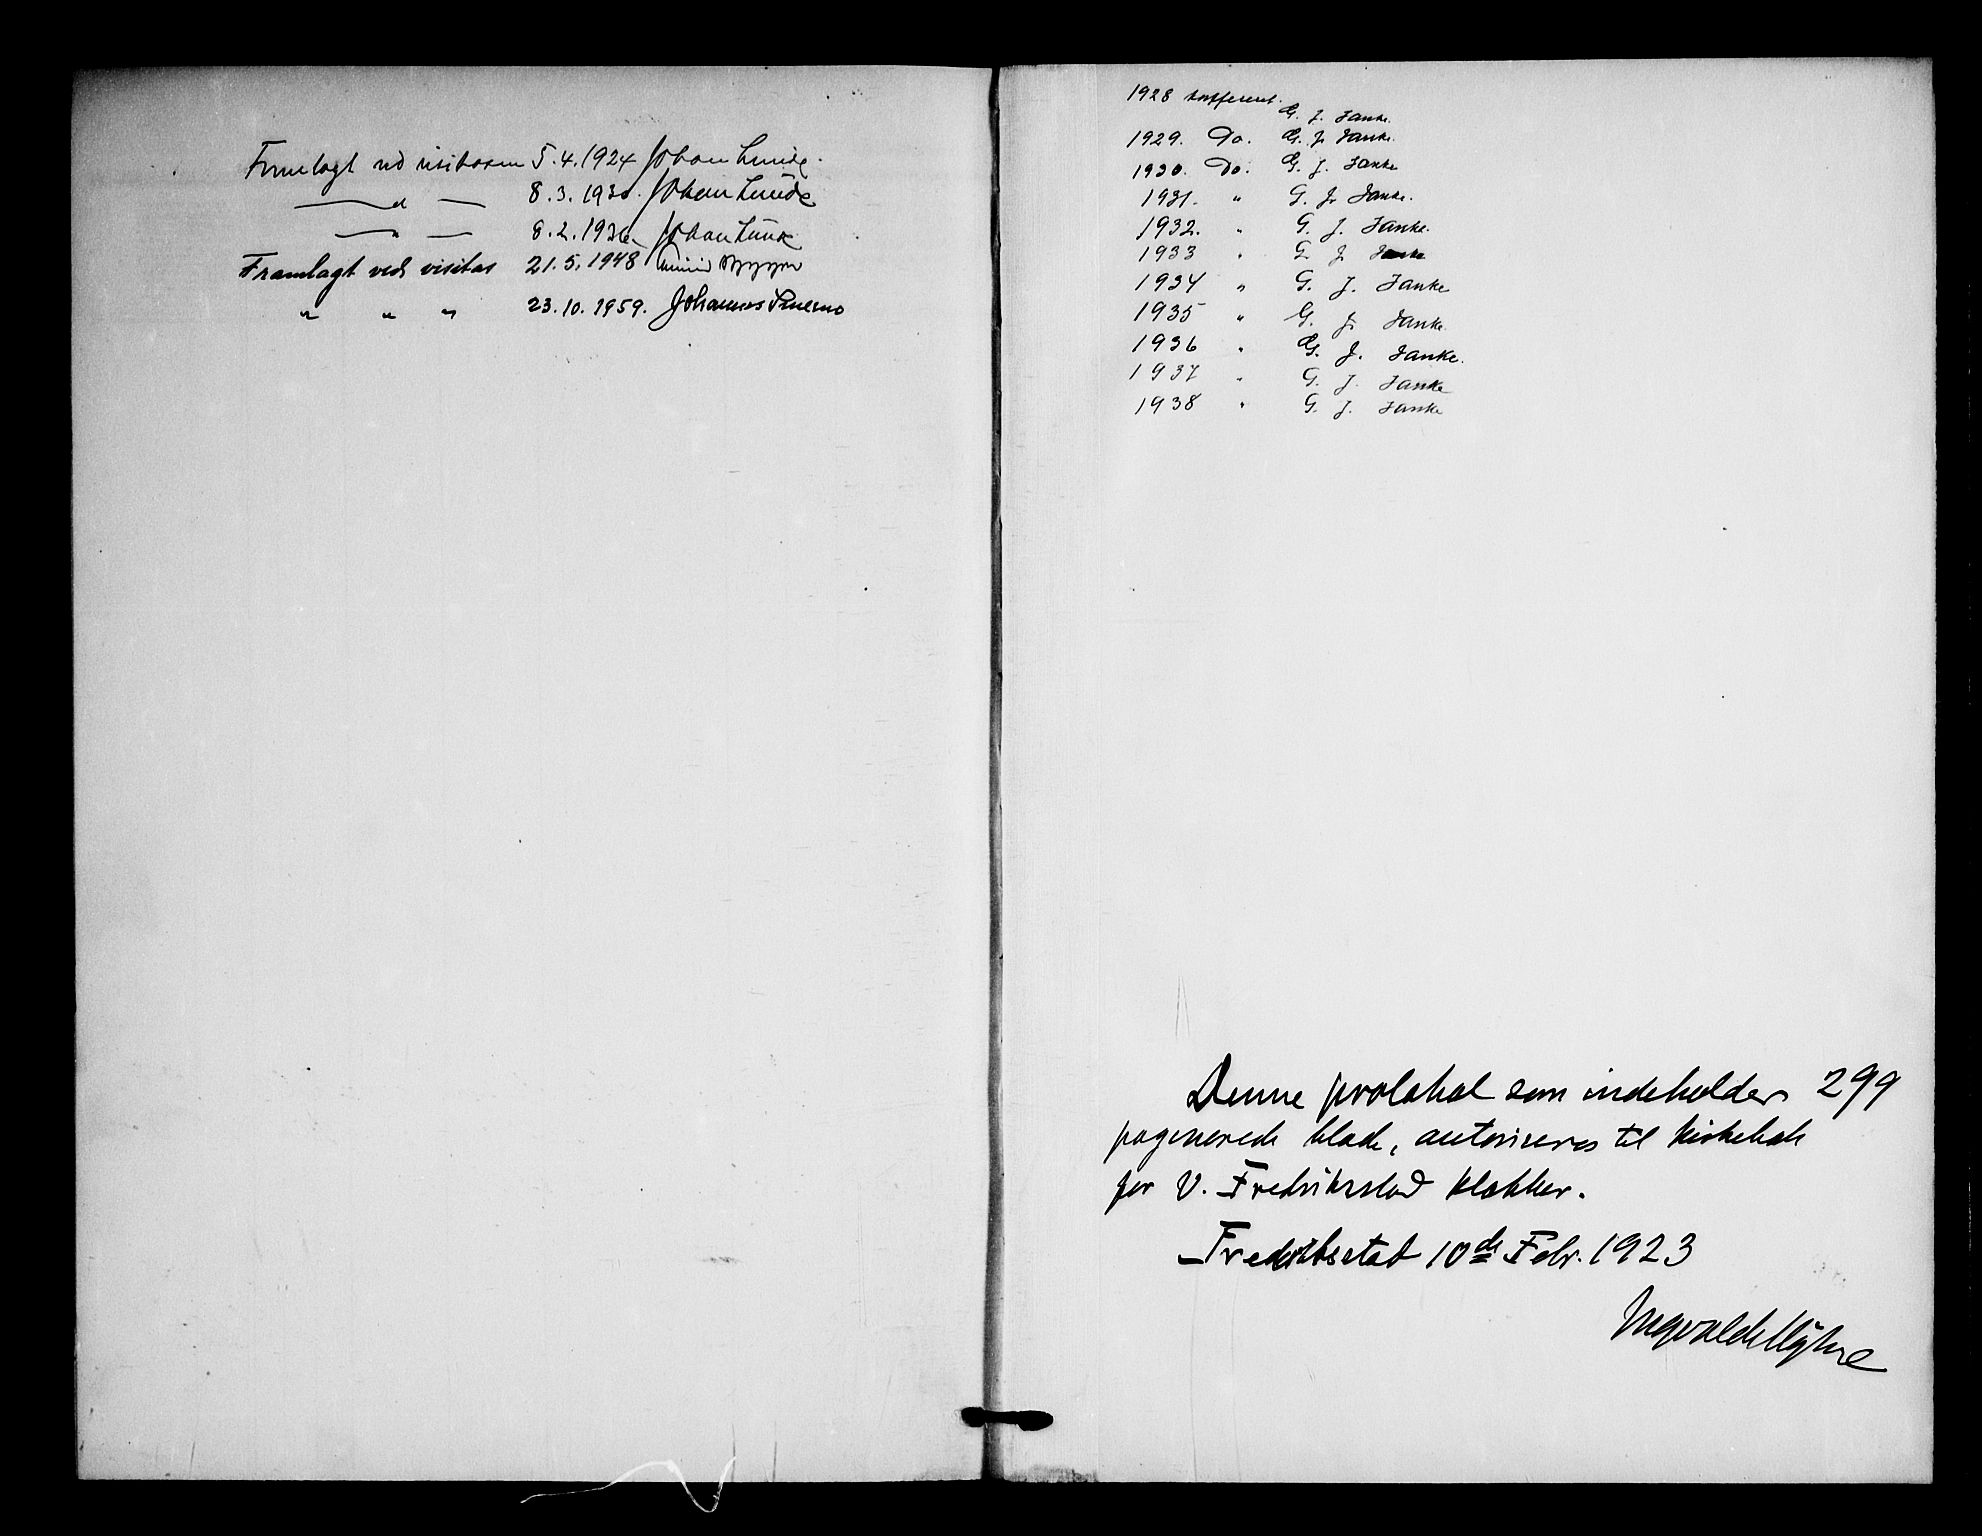 Fremlagt ved visitasen 5.4.1924 Johan Lunde.
—〃— 8.3.1930. Johan Lunde
—〃— 8.2.1936 Johan Lunde
Framlagt ved visitas 21.5.1948
〃 〃 〃 23.10.1959. Johannes Smemo
1928 konfereret.
G. J. Janke.
1929. Do. G. J. Janke.
1930. Do. G. J. Janke
1931. 〃 G. J. Janke.
1932. 〃 G. J. Janke.
1933 〃 G J Janke
1934 〃 G. J. Janke
1935 〃 G. J. Janke.
1936 〃 G. J. Janke.
1937 〃 G. J. Janke
1938 〃 G. J. Janke
Denne protokol som indeholder 299
paginerede blade, autoriseres til kirkebok
for V. Fredrikstad klokker.
Fredrikstad 10de Febr. 1923